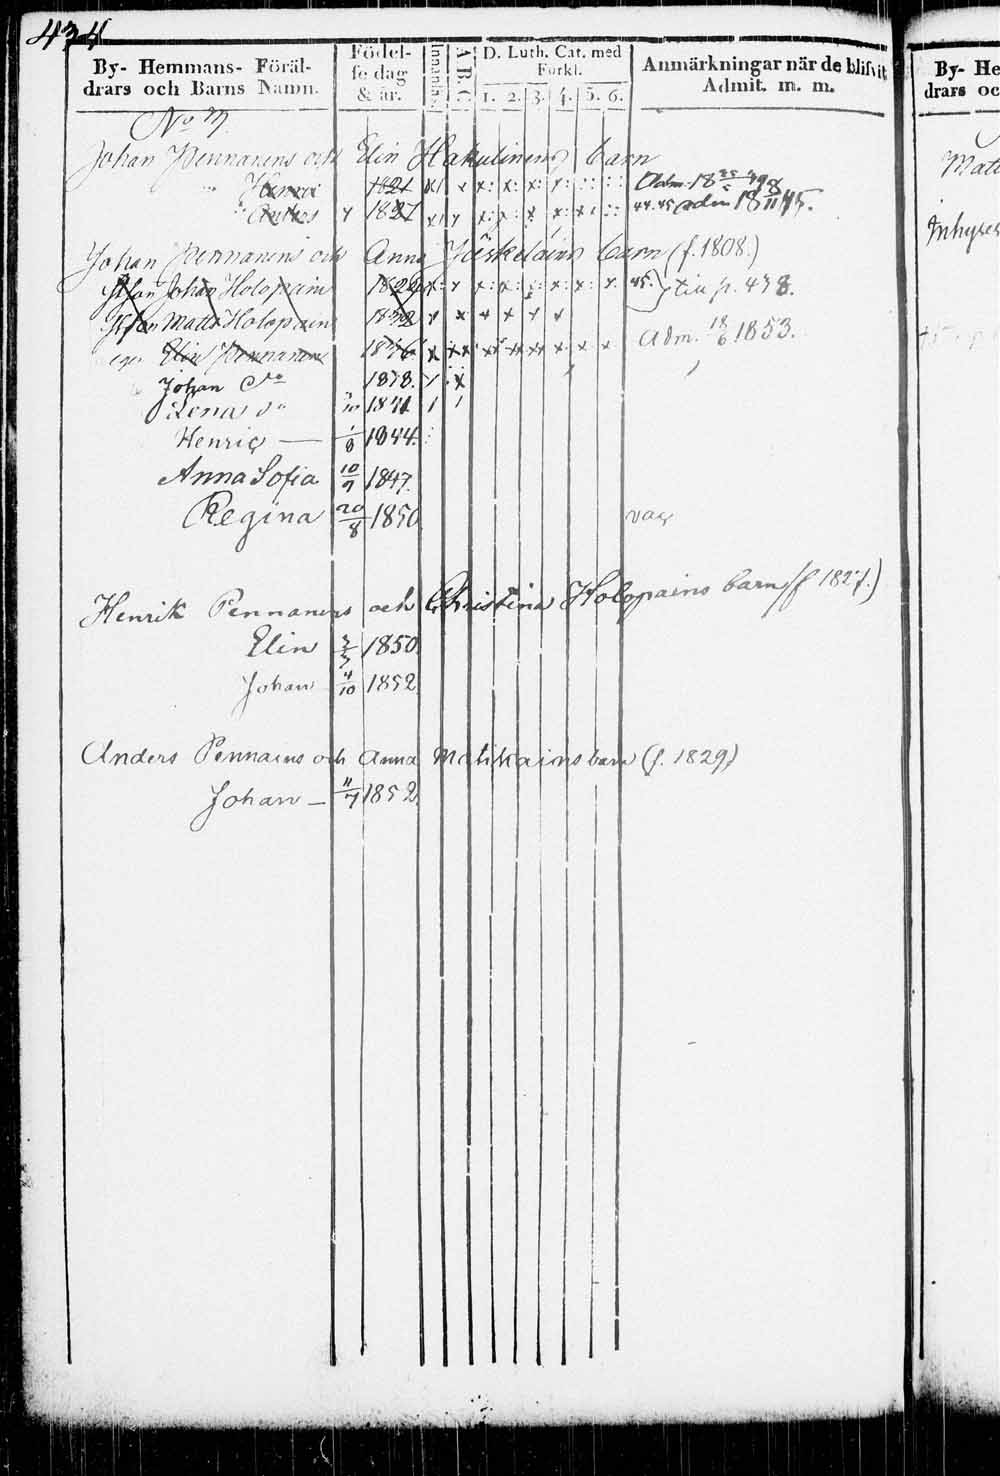 434
By- Hemmans- Föräl-
drars och Barns Namn.
Födel-
se dag
& år.
Innanl.
A B C
D. Luth. Cat. med
Förkl.
1. 2. 3. 4. 5. 6.
Anmärkningar när de blifvit
Admit. m. m.
No 7.
Johan Pennanens och Elin Hakulinens barn
1821 Adm. 18
1827 44.45 adm 18 8/11 45.
Johan Pennanens och Anna Jäskeläins barn (f. 1808.)
Johan Holopain 1829 45. till p. 478.
Matts Holopain 1832
Elin Pennanen 1836 Adm. 18/6 1853.
Johan Do 1838.
Lena Do 1841
Henric — 1/8 1844.
Anna Sofia 10/9 1847.
Regina 20/8 1850 vac
Henrik Pennanens och Christina Holopains barn (f 1827.)
Elin 1850
Johan 4/10 1852
Anders Pennanens och Anna Matikains barn (f. 1829)
Johan — 11/7 1852
By- He
drars oc
Inhyses